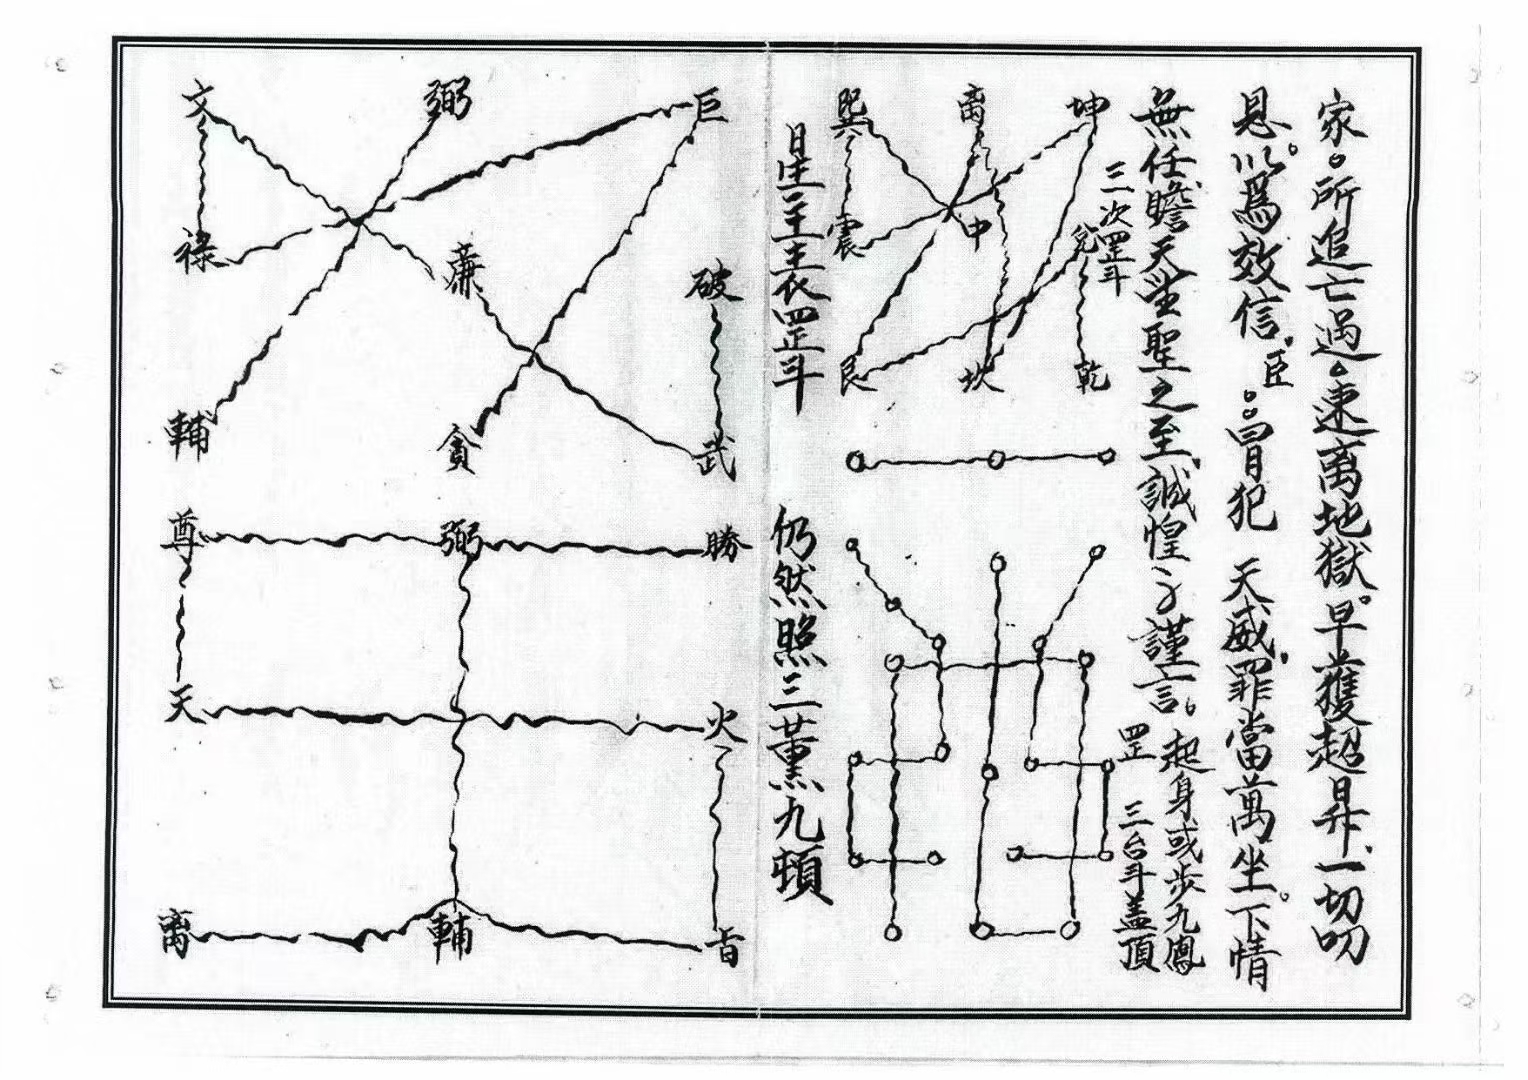 家。所追亡過。速离地獄。早獲超昇。一切叨
恩。以爲效信。臣。。冒犯 天威。罪當萬坐。下情
無任瞻天望聖之至。誠惶々謹言。起身或步九鳳
罡 三台斗蓋頂
三次罡斗
巽 离 坤
震 中 兌
艮 坎 乾
星主表罡斗 仍然照三薰九頓
文 弼 巨
祿 廉 破
輔 貪 武
尊 弼 勝
天 火
离 輔 首